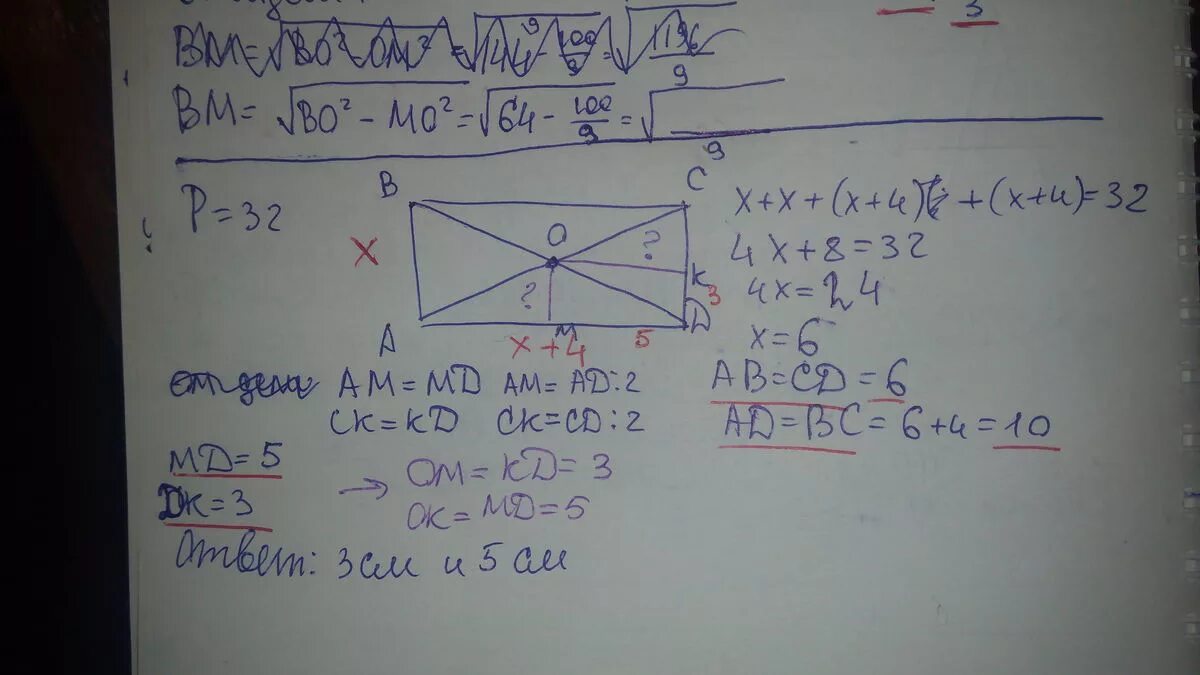 BM=√BO²-OM² = √144 - 100/9 = √1196/9
BM= √BO² - MO² = √64 - 100/9 = √ /9
P=32
B
C
X
O
?
?
K
3
A
X+4
M
5
D
x+x+(x+4)+(x+4)=32
4x+8=32
4x=24
x=6
AB=CD=6
AD=BC=6+4=10
AM=MD AM=AD:2
CK=KD CK=CD:2
MD=5
DK=3
→ OM=KD=3
OK=MD=5
Ответ: 3см и 5см